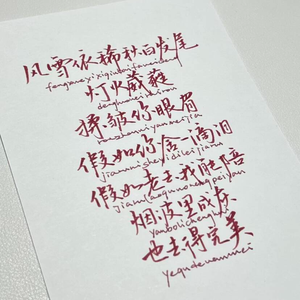 风雪依稀秋白发尾
fengxueyixiqiubaifawei
灯火葳蕤
denghuoweirui
揉皱你眼眉
rouzhouniyanmei
假如你舍一滴泪
jiarunisheyidilei
假如老去我能陪
jiarulaoquwonengpei
烟波里成灰
yanbolichenghui
也去得完美
yequdewanmei